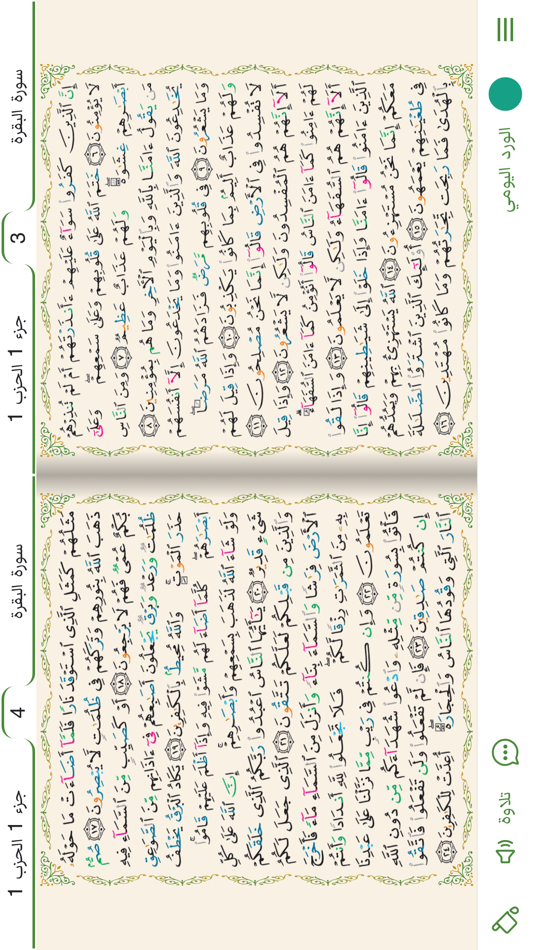 الورد اليومي
تلاوة
سورة البقرة
3
جزء 1 الحزب 1
إِنَّ ٱلَّذِينَ كَفَرُوا۟ سَوَآءٌ عَلَيْهِمْ ءَأَنذَرْتَهُمْ أَمْ لَمْ تُنذِرْهُمْ
لَا يُؤْمِنُونَ ٦ خَتَمَ ٱللَّهُ عَلَىٰ قُلُوبِهِمْ وَعَلَىٰ سَمْعِهِمْ ۖ وَعَلَىٰٓ
أَبْصَـٰرِهِمْ غِشَـٰوَةٌ ۖ وَلَهُمْ عَذَابٌ عَظِيمٌ ٧ وَمِنَ ٱلنَّاسِ
مَن يَقُولُ ءَامَنَّا بِٱللَّهِ وَبِٱلْيَوْمِ ٱلْـَٔاخِرِ وَمَا هُم بِمُؤْمِنِينَ ٨
يُخَـٰدِعُونَ ٱللَّهَ وَٱلَّذِينَ ءَامَنُوا۟ وَمَا يَخْدَعُونَ إِلَّآ أَنفُسَهُمْ
وَمَا يَشْعُرُونَ ٩ فِى قُلُوبِهِم مَّرَضٌ فَزَادَهُمُ ٱللَّهُ مَرَضًا ۖ
وَلَهُمْ عَذَابٌ أَلِيمٌۢ بِمَا كَانُوا۟ يَكْذِبُونَ ١٠ وَإِذَا قِيلَ لَهُمْ
لَا تُفْسِدُوا۟ فِى ٱلْأَرْضِ قَالُوٓا۟ إِنَّمَا نَحْنُ مُصْلِحُونَ ١١
أَلَآ إِنَّهُمْ هُمُ ٱلْمُفْسِدُونَ وَلَـٰكِن لَّا يَشْعُرُونَ ١٢ وَإِذَا قِيلَ
لَهُمْ ءَامِنُوا۟ كَمَآ ءَامَنَ ٱلنَّاسُ قَالُوٓا۟ أَنُؤْمِنُ كَمَآ ءَامَنَ ٱلسُّفَهَآءُ ۗ
أَلَآ إِنَّهُمْ هُمُ ٱلسُّفَهَآءُ وَلَـٰكِن لَّا يَعْلَمُونَ ١٣ وَإِذَا لَقُوا۟
ٱلَّذِينَ ءَامَنُوا۟ قَالُوٓا۟ ءَامَنَّا وَإِذَا خَلَوْا۟ إِلَىٰ شَيَـٰطِينِهِمْ قَالُوٓا۟ إِنَّا
مَعَكُمْ إِنَّمَا نَحْنُ مُسْتَهْزِءُونَ ١٤ ٱللَّهُ يَسْتَهْزِئُ بِهِمْ وَيَمُدُّهُمْ
فِى طُغْيَـٰنِهِمْ يَعْمَهُونَ ١٥ أُو۟لَـٰٓئِكَ ٱلَّذِينَ ٱشْتَرَوُا۟ ٱلضَّلَـٰلَةَ
بِٱلْهُدَىٰ فَمَا رَبِحَت تِّجَـٰرَتُهُمْ وَمَا كَانُوا۟ مُهْتَدِينَ ١٦
سورة البقرة
4
جزء 1 الحزب 1
مَثَلُهُمْ كَمَثَلِ ٱلَّذِى ٱسْتَوْقَدَ نَارًا فَلَمَّآ أَضَآءَتْ مَا حَوْلَهُۥ
ذَهَبَ ٱللَّهُ بِنُورِهِمْ وَتَرَكَهُمْ فِى ظُلُمَـٰتٍ لَّا يُبْصِرُونَ ١٧ صُمٌّۢ
بُكْمٌ عُمْىٌ فَهُمْ لَا يَرْجِعُونَ ١٨ أَوْ كَصَيِّبٍ مِّنَ ٱلسَّمَآءِ فِيهِ
ظُلُمَـٰتٌ وَرَعْدٌ وَبَرْقٌ يَجْعَلُونَ أَصَـٰبِعَهُمْ فِىٓ ءَاذَانِهِم مِّنَ ٱلصَّوَٰعِقِ
حَذَرَ ٱلْمَوْتِ ۚ وَٱللَّهُ مُحِيطٌۢ بِٱلْكَـٰفِرِينَ ١٩ يَكَادُ ٱلْبَرْقُ يَخْطَفُ
أَبْصَـٰرَهُمْ ۖ كُلَّمَآ أَضَآءَ لَهُم مَّشَوْا۟ فِيهِ وَإِذَآ أَظْلَمَ عَلَيْهِمْ قَامُوا۟ ۚ
وَلَوْ شَآءَ ٱللَّهُ لَذَهَبَ بِسَمْعِهِمْ وَأَبْصَـٰرِهِمْ ۚ إِنَّ ٱللَّهَ عَلَىٰ كُلِّ
شَىْءٍ قَدِيرٌ ٢٠ يَـٰٓأَيُّهَا ٱلنَّاسُ ٱعْبُدُوا۟ رَبَّكُمُ ٱلَّذِى خَلَقَكُمْ
وَٱلَّذِينَ مِن قَبْلِكُمْ لَعَلَّكُمْ تَتَّقُونَ ٢١ ٱلَّذِى جَعَلَ لَكُمُ
ٱلْأَرْضَ فِرَٰشًا وَٱلسَّمَآءَ بِنَآءً وَأَنزَلَ مِنَ ٱلسَّمَآءِ مَآءً فَأَخْرَجَ
بِهِۦ مِنَ ٱلثَّمَرَٰتِ رِزْقًا لَّكُمْ ۖ فَلَا تَجْعَلُوا۟ لِلَّهِ أَندَادًا وَأَنتُمْ
تَعْلَمُونَ ٢٢ وَإِن كُنتُمْ فِى رَيْبٍ مِّمَّا نَزَّلْنَا عَلَىٰ عَبْدِنَا
فَأْتُوا۟ بِسُورَةٍ مِّن مِّثْلِهِۦ وَٱدْعُوا۟ شُهَدَآءَكُم مِّن دُونِ ٱللَّهِ
إِن كُنتُمْ صَـٰدِقِينَ ٢٣ فَإِن لَّمْ تَفْعَلُوا۟ وَلَن تَفْعَلُوا۟ فَٱتَّقُوا۟
ٱلنَّارَ ٱلَّتِى وَقُودُهَا ٱلنَّاسُ وَٱلْحِجَارَةُ ۖ أُعِدَّتْ لِلْكَـٰفِرِينَ ٢٤